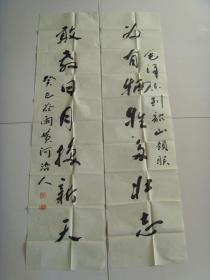 为有牺牲多壮志
毛泽东到韶山领联
敢教日月换新天
癸巳俗闲黄河浴人